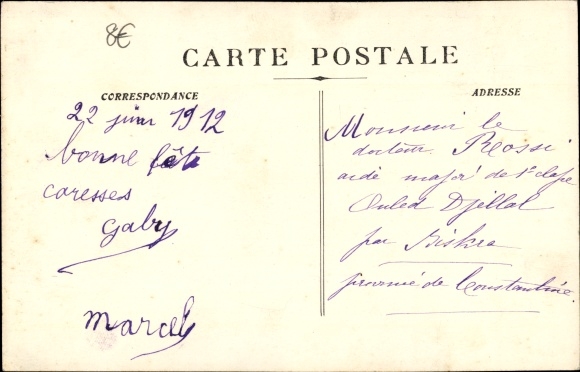 8€
CARTE POSTALE
CORRESPONDANCE
ADRESSE
22 juin 1912
bonne fête
caresses
Gaby
Marcel
Monsieur le
docteur Rossi
aide major de 1e classe
Ouled Djellal
par Biskra
province de Constantine.